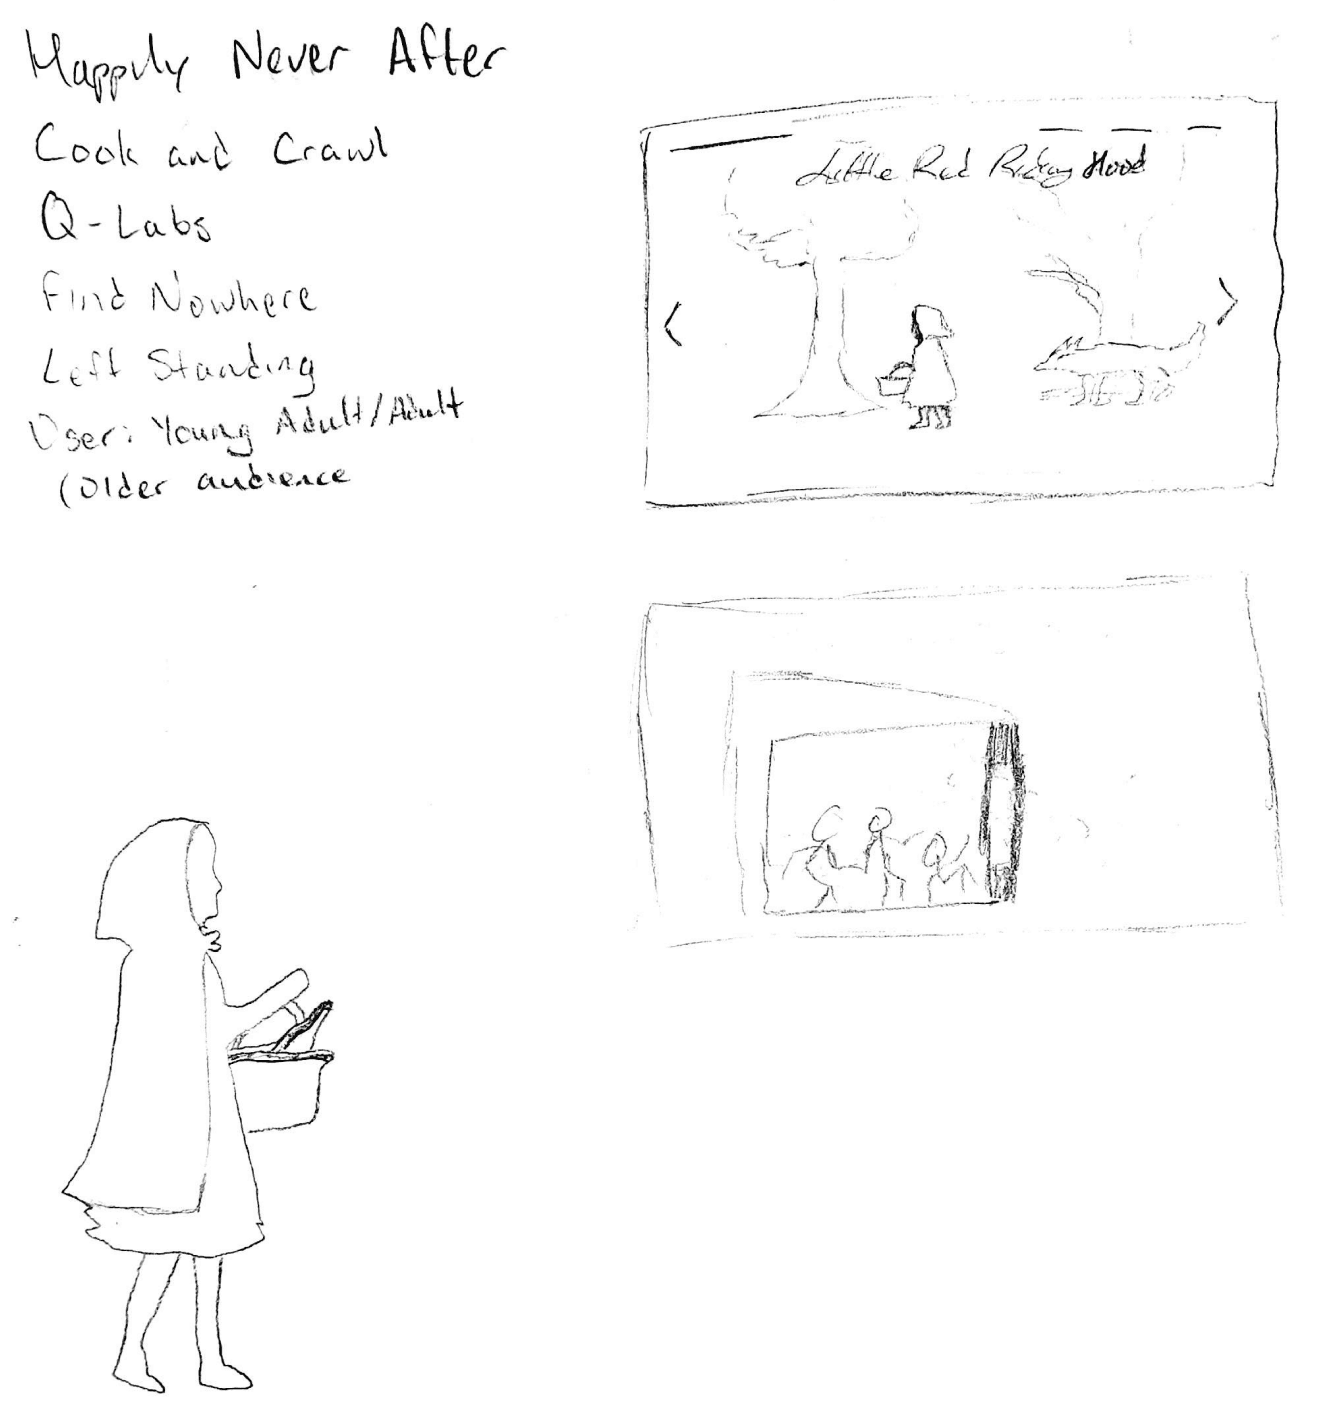 Happily Never After
Cook and Crawl
Q-Labs
Find Nowhere
Left Standing
User: Young Adult/Adult
(Older audience
Little Red Riding Hood